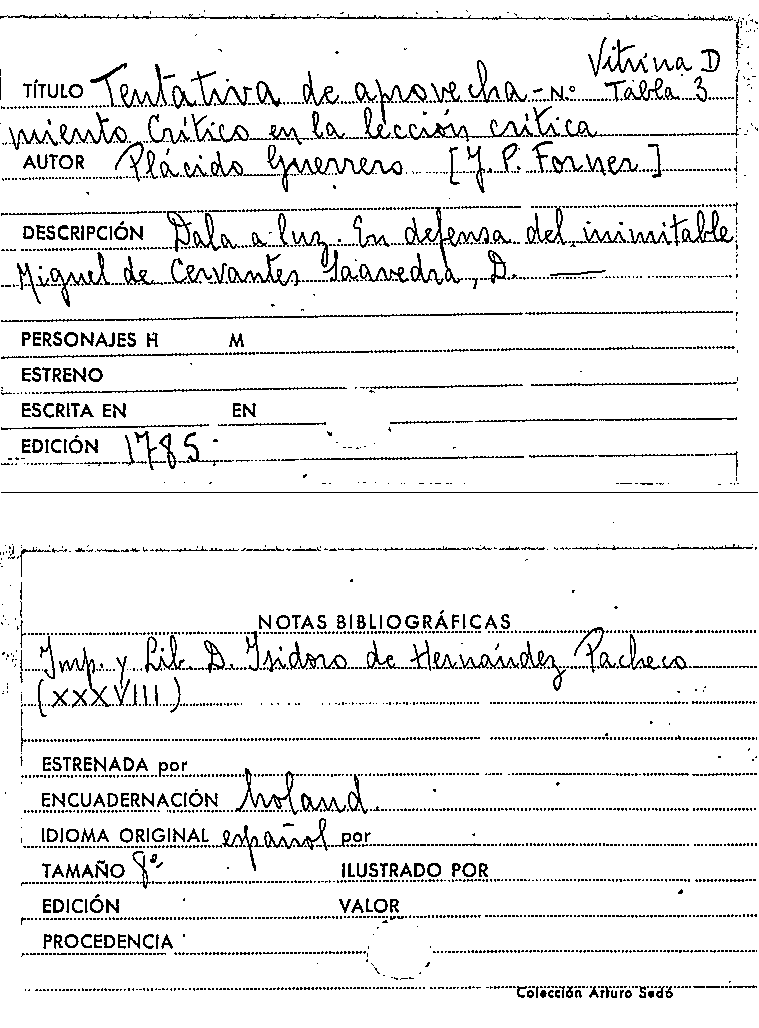 Vitrina D
TÍTULO Tentativa de aprovecha- N.º Tabla 3
miento Crítico en la lección crítica
AUTOR Plácido Guerrero [J. P. Forner]
DESCRIPCIÓN Dala a luz. En defensa del inimitable
Miguel de Cervantes Saavedra, D. —
PERSONAJES H M
ESTRENO
ESCRITA EN EN
EDICIÓN 1785.
NOTAS BIBLIOGRÁFICAS
Imp. y Lib. D. Isidoro de Hernández Pacheco
(XXXVIII)
ESTRENADA por
ENCUADERNACIÓN holand.
IDIOMA ORIGINAL español por
TAMAÑO 8º. ILUSTRADO POR
EDICIÓN VALOR
PROCEDENCIA
Colección Arturo Sedó